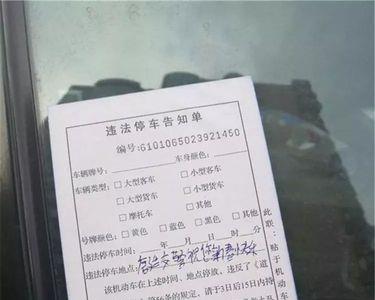 违法停车告知单
编号:6101065023921450
车辆牌号: 车身颜色:
车辆类型: □大型客车 □小型客车
□大型货车 □小型货车
□摩托车 □其他
号牌颜色: □黄色 □蓝色 □黑色 □其他
违法停车时间: 年 月 日 时 分
违法停车地点: 交警祝您
该机动车在上述时间、地点停放,违反了《道
第56条的规定,请于3日后15日内持
此联:粘于机动车